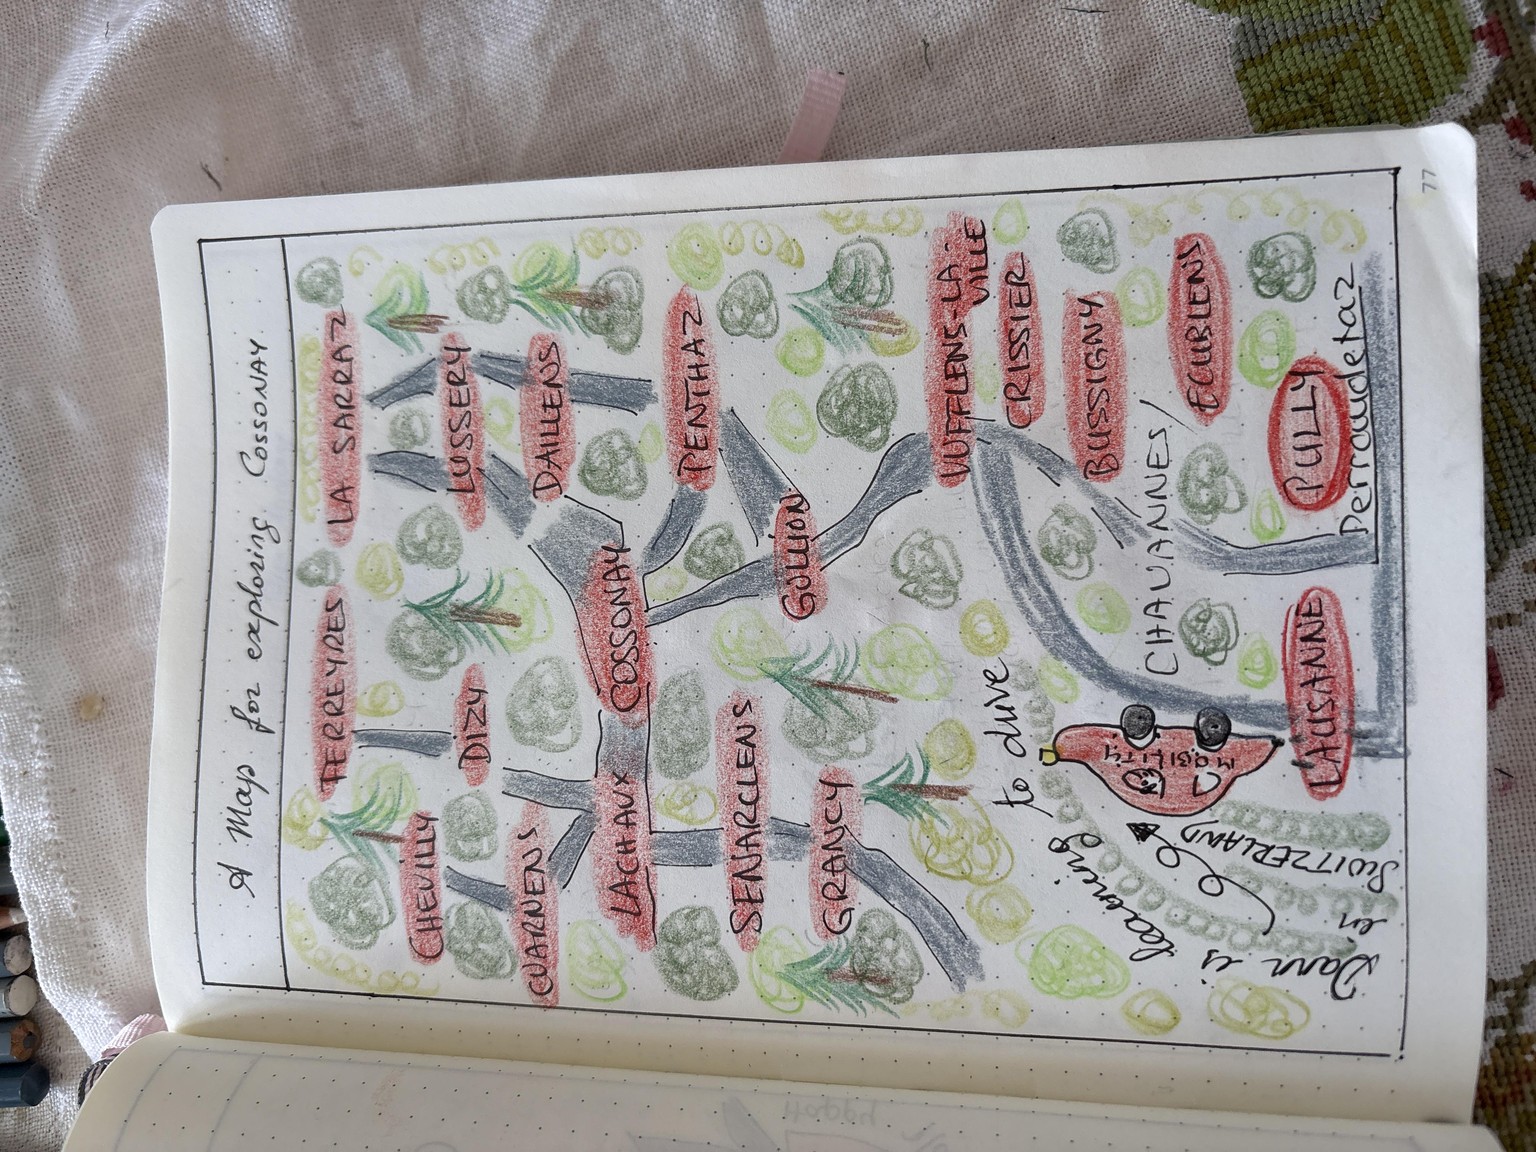 A Map for exploring Cossonay
FERREYRES
LA SARRAZ
CHEVILLY
DIZY
LUSSERY
CUARNENS
DAILLENS
LACHAUX
COSSONAY
SENARCLENS
PENTHAZ
GRANCY
GOLLION
VUFFLENS-LA-
VILLE
CRISSIER
BUSSIGNY
CHAVANNES/
ECUBLENS
PULLY
Perraudetaz
LAUSANNE
Dann is learning to drive
in SWITZERLAND
MOBILITY
77